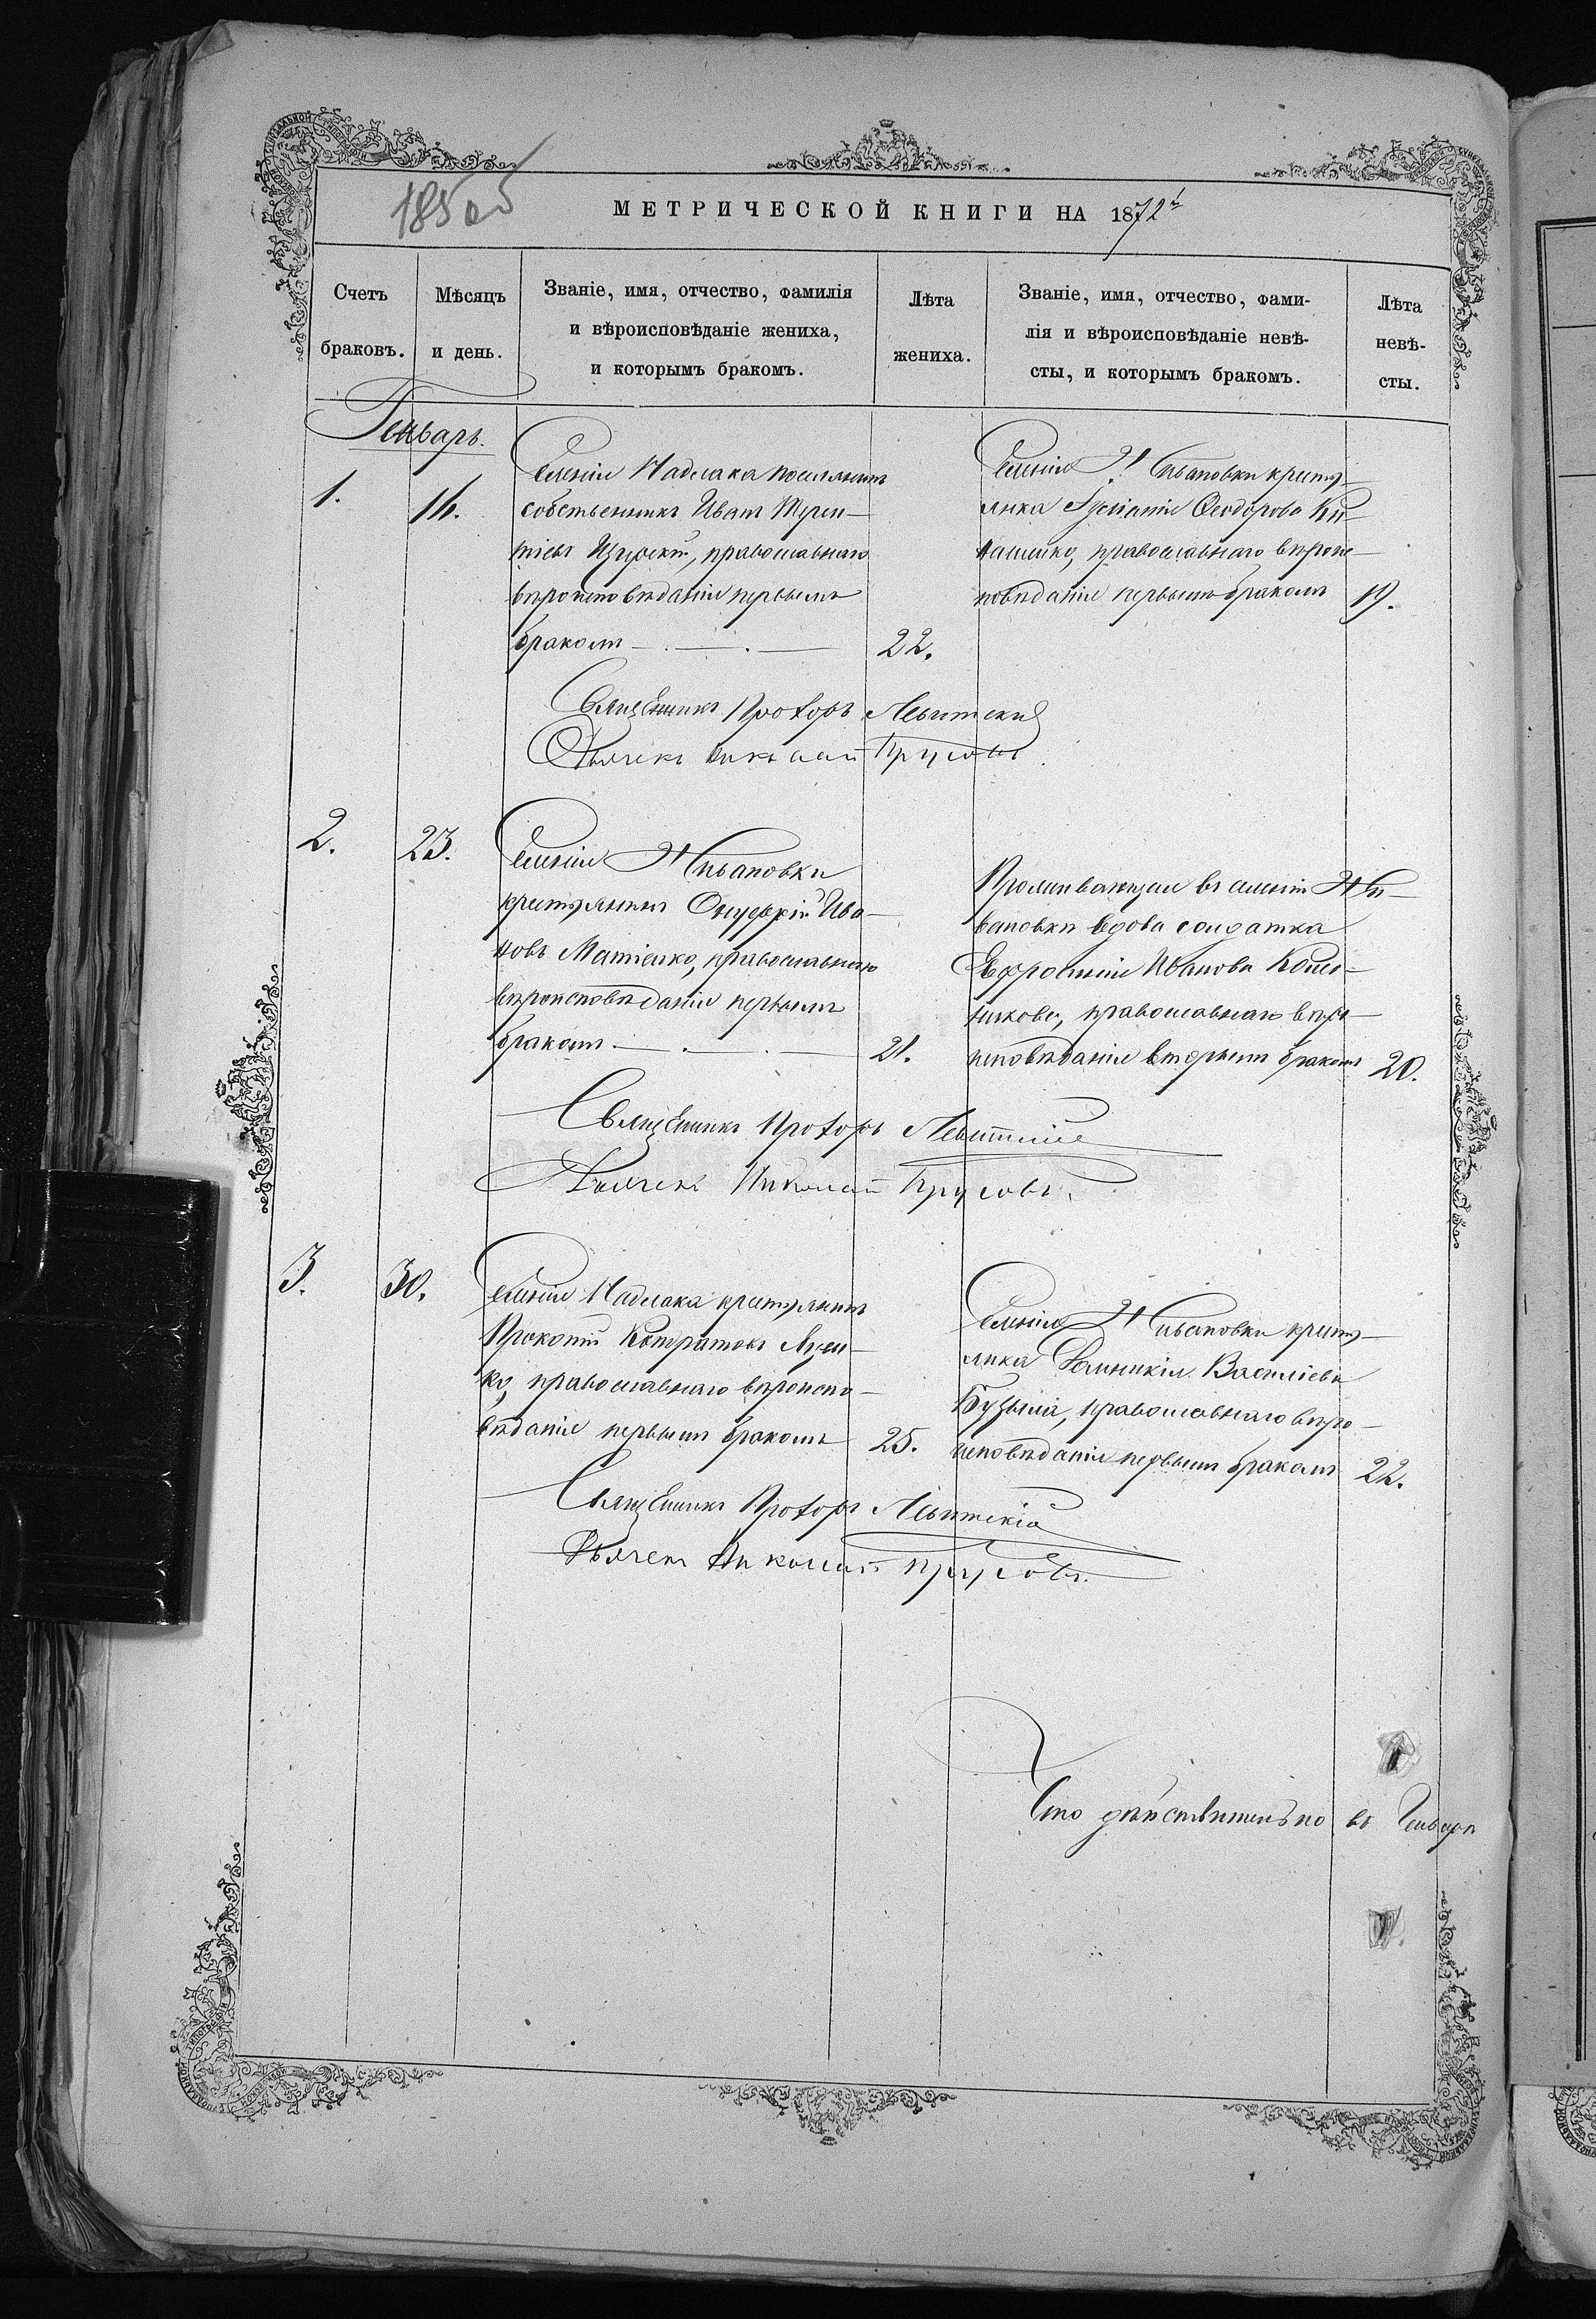 185 об
МЕТРИЧЕСКОЙ КНИГИ НА 1872й
Счетъ браковъ.
Мѣсяцъ и день.
Званіе, имя, отчество, фамилія
и вѣроисповѣданіе жениха,
и которымъ бракомъ.
Лѣта жениха.
Званіе, имя, отчество, фами-
лія и вѣроисповѣданіе невѣ-
сты, и которымъ бракомъ.
Лѣта невѣ-сты.
Генварь.
1.
16.
Селенія Надлака поселянинъ
собственникъ Иванъ
православнаго
вѣроисповѣданія первымъ
бракомъ
22.
Селенія крестья-
нка Ѳеодорова
православнаго вѣроис-
повѣданія первымъ бракомъ
19.
Священникъ Прохоръ Левитскій
Дьячекъ Николай Прусовъ
2.
23.
Селенія
крестьянинъ Онуфрій Ива-
новъ Матіенко, православнаго
вѣроисповѣданія первымъ
бракомъ
21.
Проживающая въ селеніи
вдова солдатка
Евфросинія Иванова
православнаго вѣро-
исповѣданія вторымъ бракомъ
20.
Священникъ Прохоръ Левитскій
Дьячекъ Николай Прусовъ.
3.
30.
Селенія Надлака крестьянинъ
Прокопій Кондратовъ
православнаго вѣроиспо-
вѣданія первымъ бракомъ
25.
Селенія крестья-
нка Домникія Василіева
православнаго вѣро-
исповѣданія первымъ бракомъ
22.
Священникъ Прохоръ Левитскій
Дьячекъ Николай Прусовъ.
Что дѣйствительно въ Генварѣ